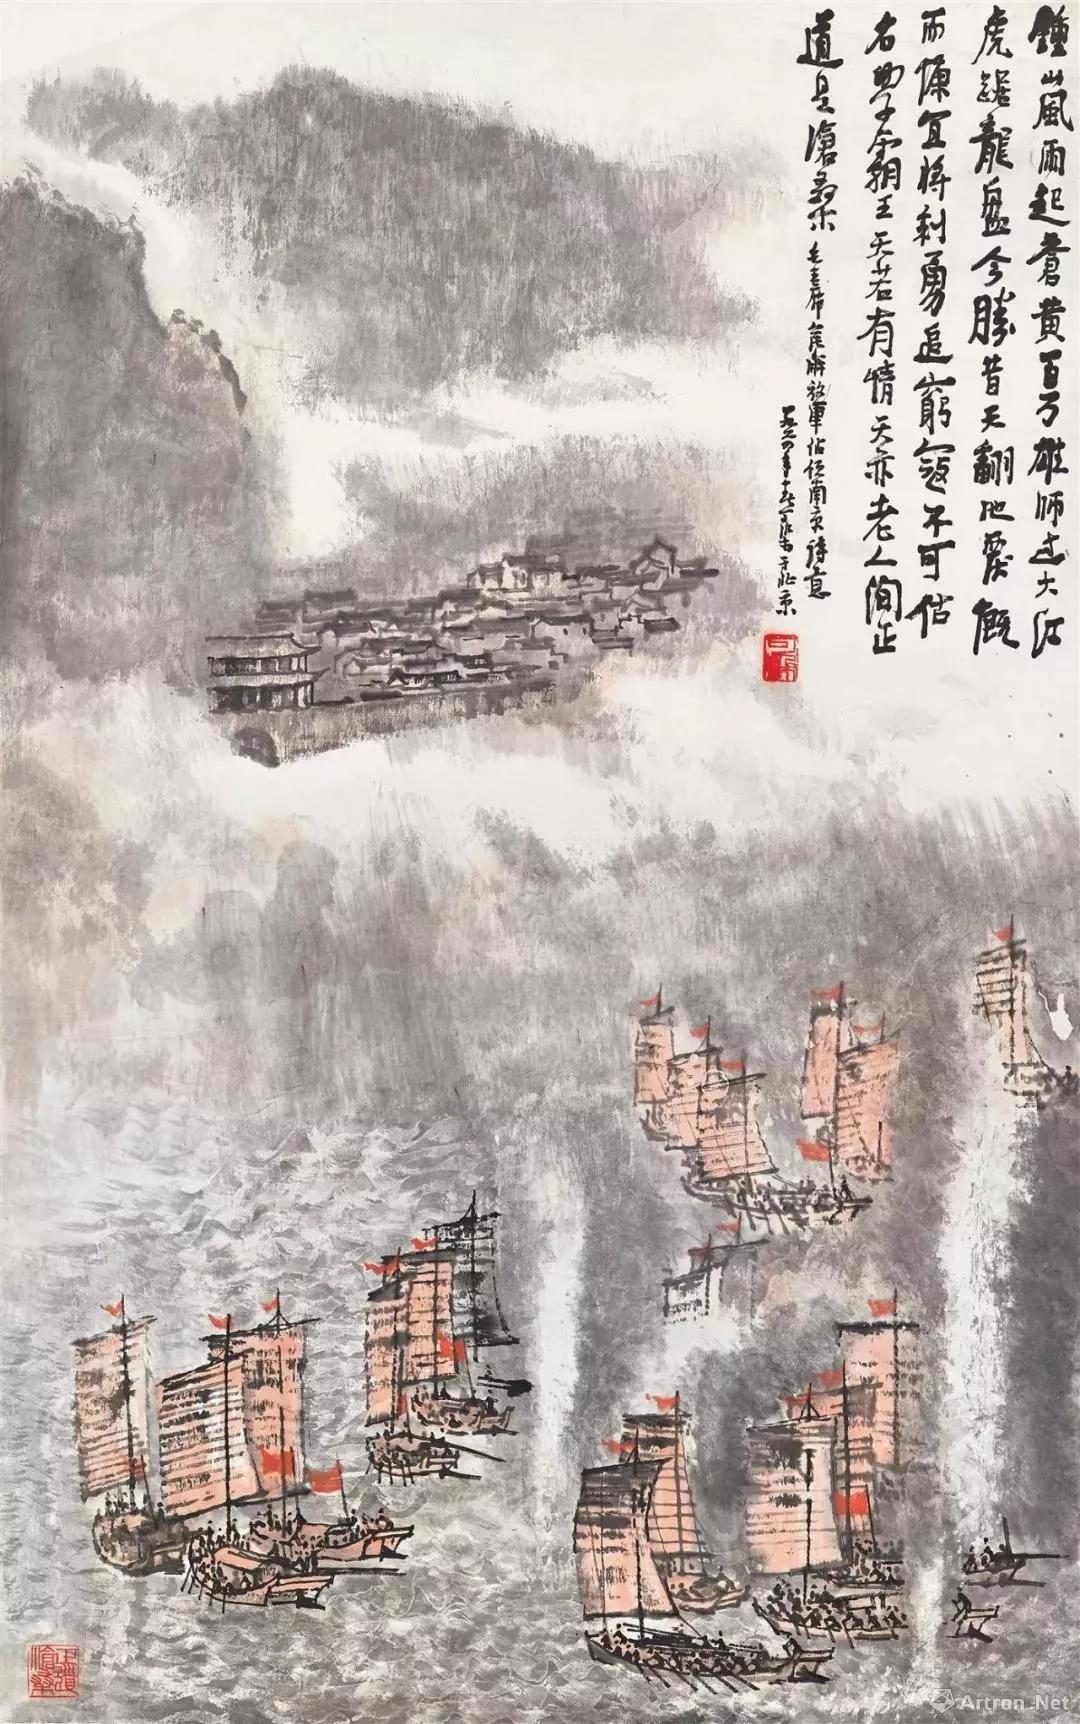 鍾山風雨起蒼黄百万雄師过大江
虎踞龍盘今勝昔天翻地覆慨
而慷宜將剩勇追窮寇不可沽
名學霸王天若有情天亦老人间正
道是滄桑 毛主席人民解放軍佔領南京詩意
一九六四年 可染作於北京
可染
正道滄桑
Artron.Net